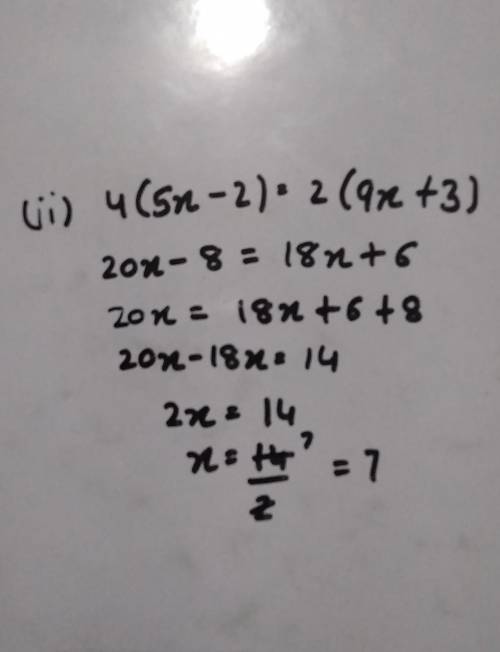 (ii) 4(5x-2) = 2(9x+3)
20x - 8 = 18x + 6
20x = 18x + 6 + 8
20x - 18x = 14
2x = 14
x = 14/2 7 = 7